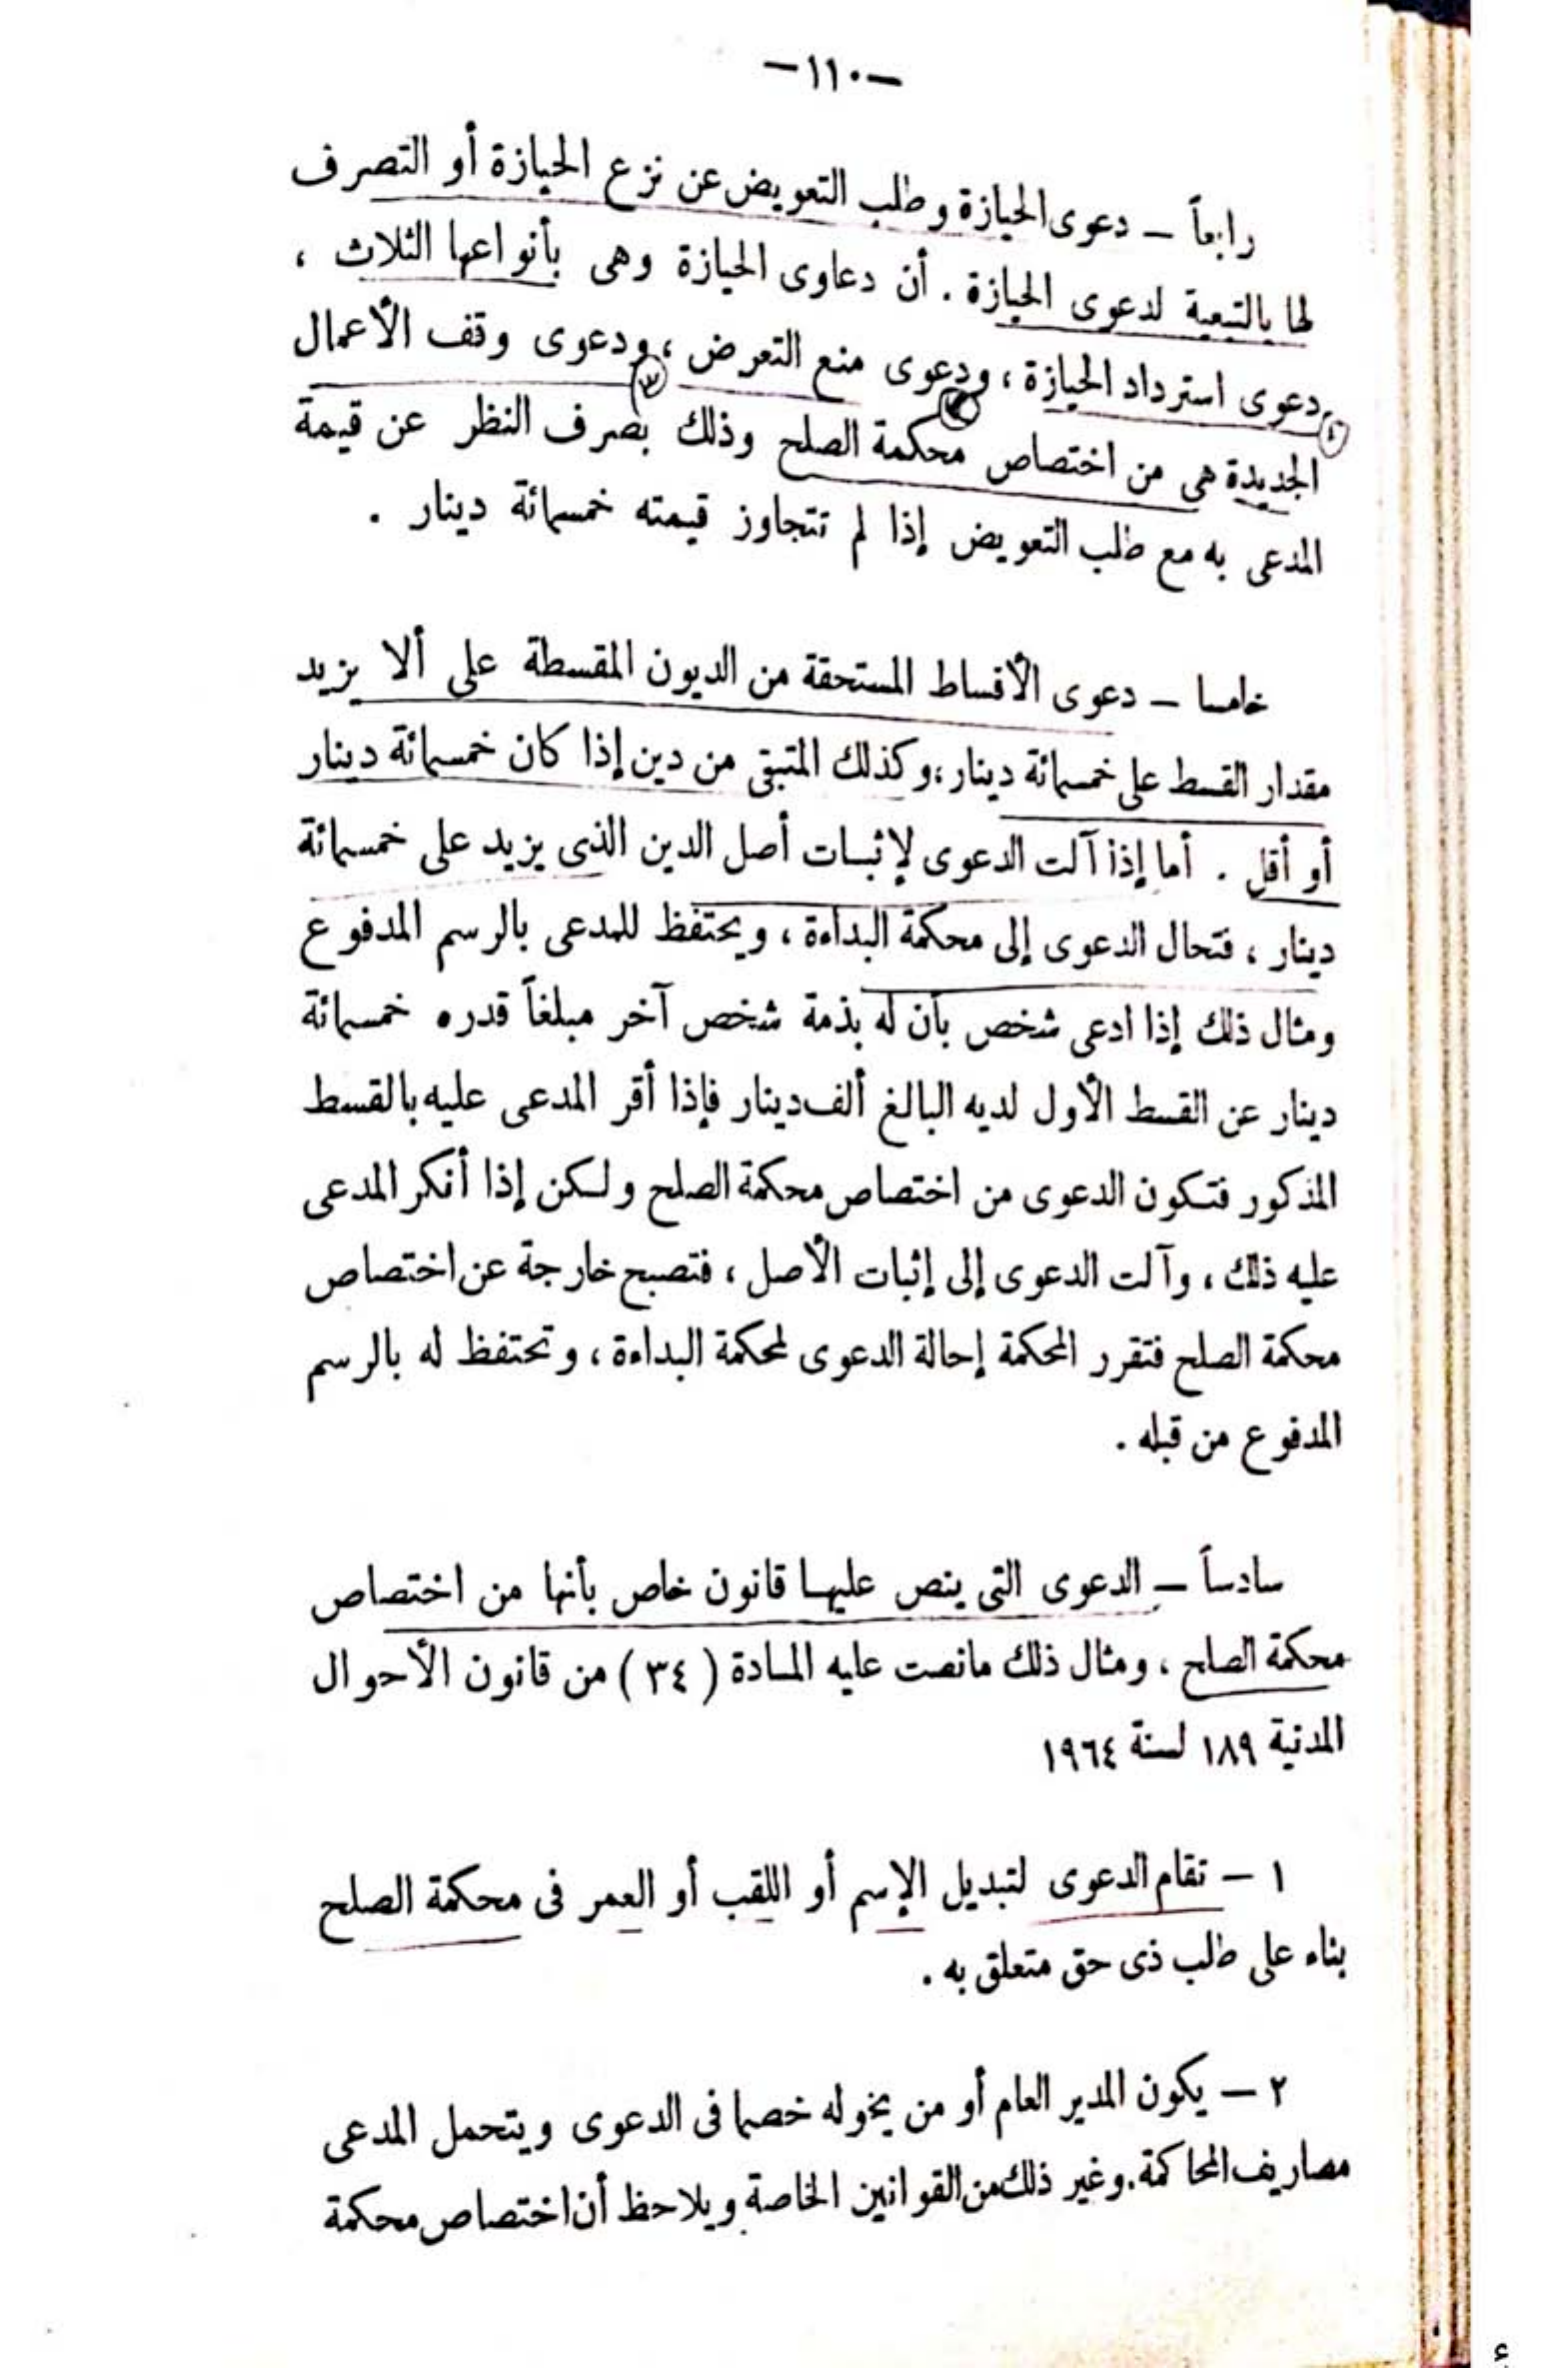 —١١٠—
رابعاً — دعوى الحيازة وطلب التعويض عن نزع الحيازة أو التصرف
لها بالتبعية لدعوى الحيازة . أن دعاوى الحيازة وهى بأنواعها الثلاث ،
دعوى استرداد الحيازة ، ودعوى منع التعرض ، ودعوى وقف الأعمال
الجديدة هى من اختصاص محكمة الصلح وذلك بصرف النظر عن قيمة
المدعى به مع طلب التعويض إذا لم تتجاوز قيمته خمسمائة دينار .
خامسا — دعوى الأقساط المستحقة من الديون المقسطة على ألا يزيد
مقدار القسط على خمسمائة دينار ، وكذلك المتبقى من دين إذا كان خمسمائة دينار
أو أقل . أما إذا آلت الدعوى لإثبات أصل الدين الذى يزيد على خمسمائة
دينار ، فتحال الدعوى إلى محكمة البداءة ، ويحتفظ للمدعى بالرسم المدفوع
ومثال ذلك إذا ادعى شخص بأن له بذمة شخص آخر مبلغاً قدره خمسمائة
دينار عن القسط الأول لديه البالغ ألف دينار فإذا أقر المدعى عليه بالقسط
المذكور فتكون الدعوى من اختصاص محكمة الصلح ولكن إذا أنكر المدعى
عليه ذلك ، وآلت الدعوى إلى إثبات الأصل ، فتصبح خارجة عن اختصاص
محكمة الصلح فتقرر المحكمة إحالة الدعوى لمحكمة البداءة ، وتحتفظ له بالرسم
المدفوع من قبله .
سادساً — الدعوى التى ينص عليها قانون خاص بأنها من اختصاص
محكمة الصلح ، ومثال ذلك مانصت عليه المادة ( ٣٤ ) من قانون الأحوال
المدنية ١٨٩ لسنة ١٩٦٤
١ — تقام الدعوى لتبديل الإسم أو اللقب أو العمر فى محكمة الصلح
بناء على طلب ذى حق متعلق به .
٢ — يكون المدير العام أو من يخوله خصما فى الدعوى ويتحمل المدعى
مصاريف المحاكمة . وغير ذلك من القوانين الخاصة ويلاحظ أن اختصاص محكمة